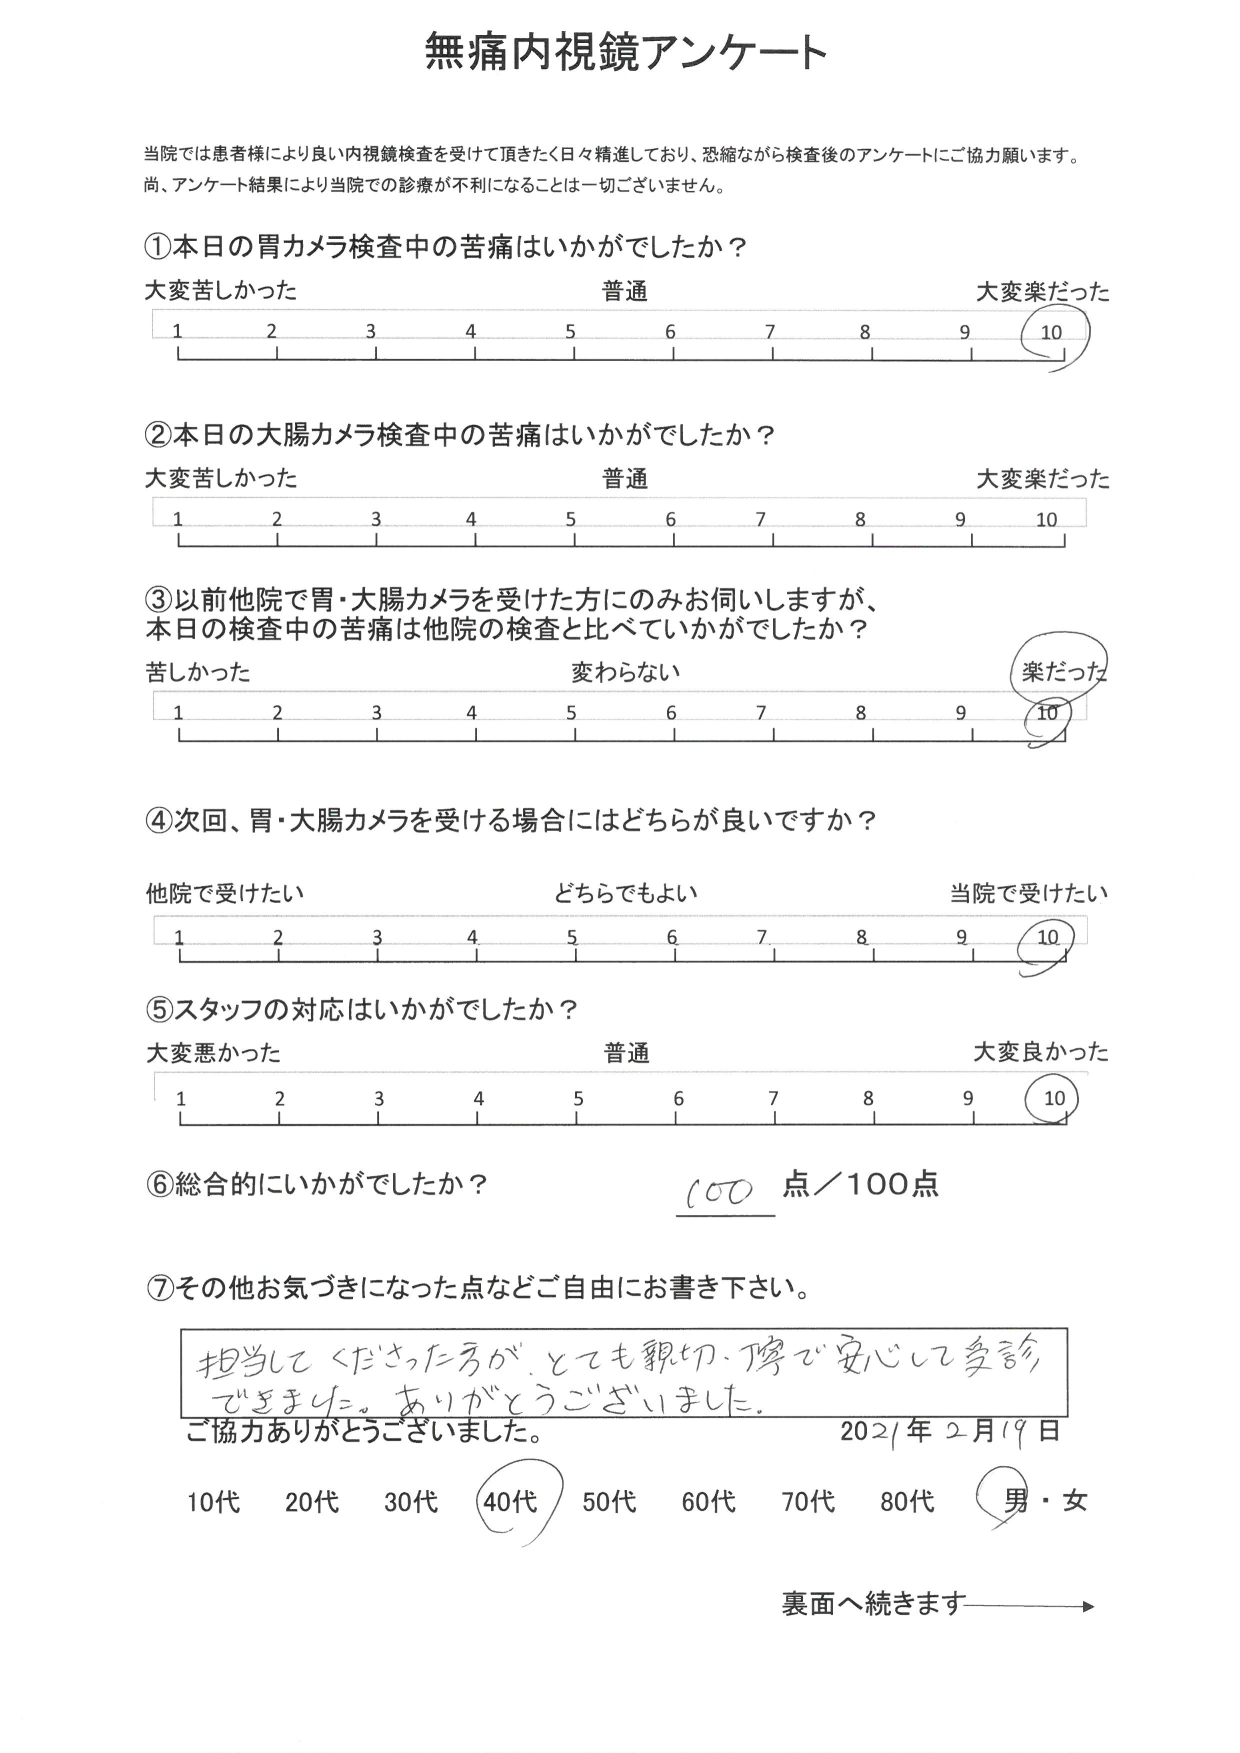 無痛内視鏡アンケート
当院では患者様により良い内視鏡検査を受けて頂きたく日々精進しており、恐縮ながら検査後のアンケートにご協力願います。
尚、アンケート結果により当院での診療が不利になることは一切ございません。
①本日の胃カメラ検査中の苦痛はいかがでしたか？
大変苦しかった 普通 大変楽だった
1 2 3 4 5 6 7 8 9 10
②本日の大腸カメラ検査中の苦痛はいかがでしたか？
大変苦しかった 普通 大変楽だった
1 2 3 4 5 6 7 8 9 10
③以前他院で胃・大腸カメラを受けた方にのみお伺いしますが、
本日の検査中の苦痛は他院の検査と比べていかがでしたか？
苦しかった 変わらない 楽だった
1 2 3 4 5 6 7 8 9 10
④次回、胃・大腸カメラを受ける場合にはどちらが良いですか？
他院で受けたい どちらでもよい 当院で受けたい
1 2 3 4 5 6 7 8 9 10
⑤スタッフの対応はいかがでしたか？
大変悪かった 普通 大変良かった
1 2 3 4 5 6 7 8 9 10
⑥総合的にいかがでしたか？ 100 点／100点
⑦その他お気づきになった点などご自由にお書き下さい。
担当してくださった方が、とても親切・丁寧で安心して受診
できました。ありがとうございました。
ご協力ありがとうございました。 2021年 2月19日
10代 20代 30代 40代 50代 60代 70代 80代 男・女
裏面へ続きます